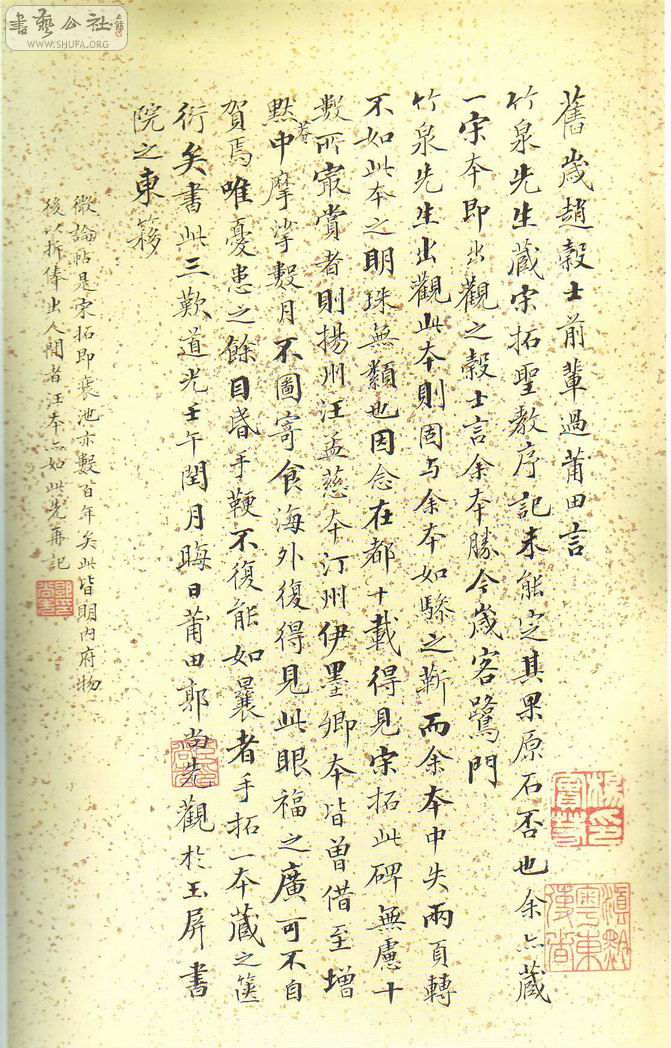 舊歲趙穀士前輩過莆田言
竹泉先生藏宗拓聖教序記未能定其果原石否也余亦藏
一宗本即出觀之穀士言余本勝今歲客鷺門
竹泉先生出觀此本則固与余本如驂之靳而余本中失兩頁轉
不如此本之明珠無纇也因念在都十載得見宗拓此碑無慮十
數所最賞者則揚州汪孟慈本汀州伊墨卿本皆曾借至增
默菴中摩挲數月不圖寄食海外復得見此眼福之廣可不自
賀焉唯憂患之餘目昏手鞕不復能如曩者手拓一本藏之篋
衍矣書此三歎道光壬午閏月晦日莆田郭尚先觀於玉屏書
院之東簃
微論帖是宋拓即裝池亦數百年矣此皆明內府物
後以拆俸出人間者汪本亦如此先再記
書藝公社
WWW.SHUFA.ORG